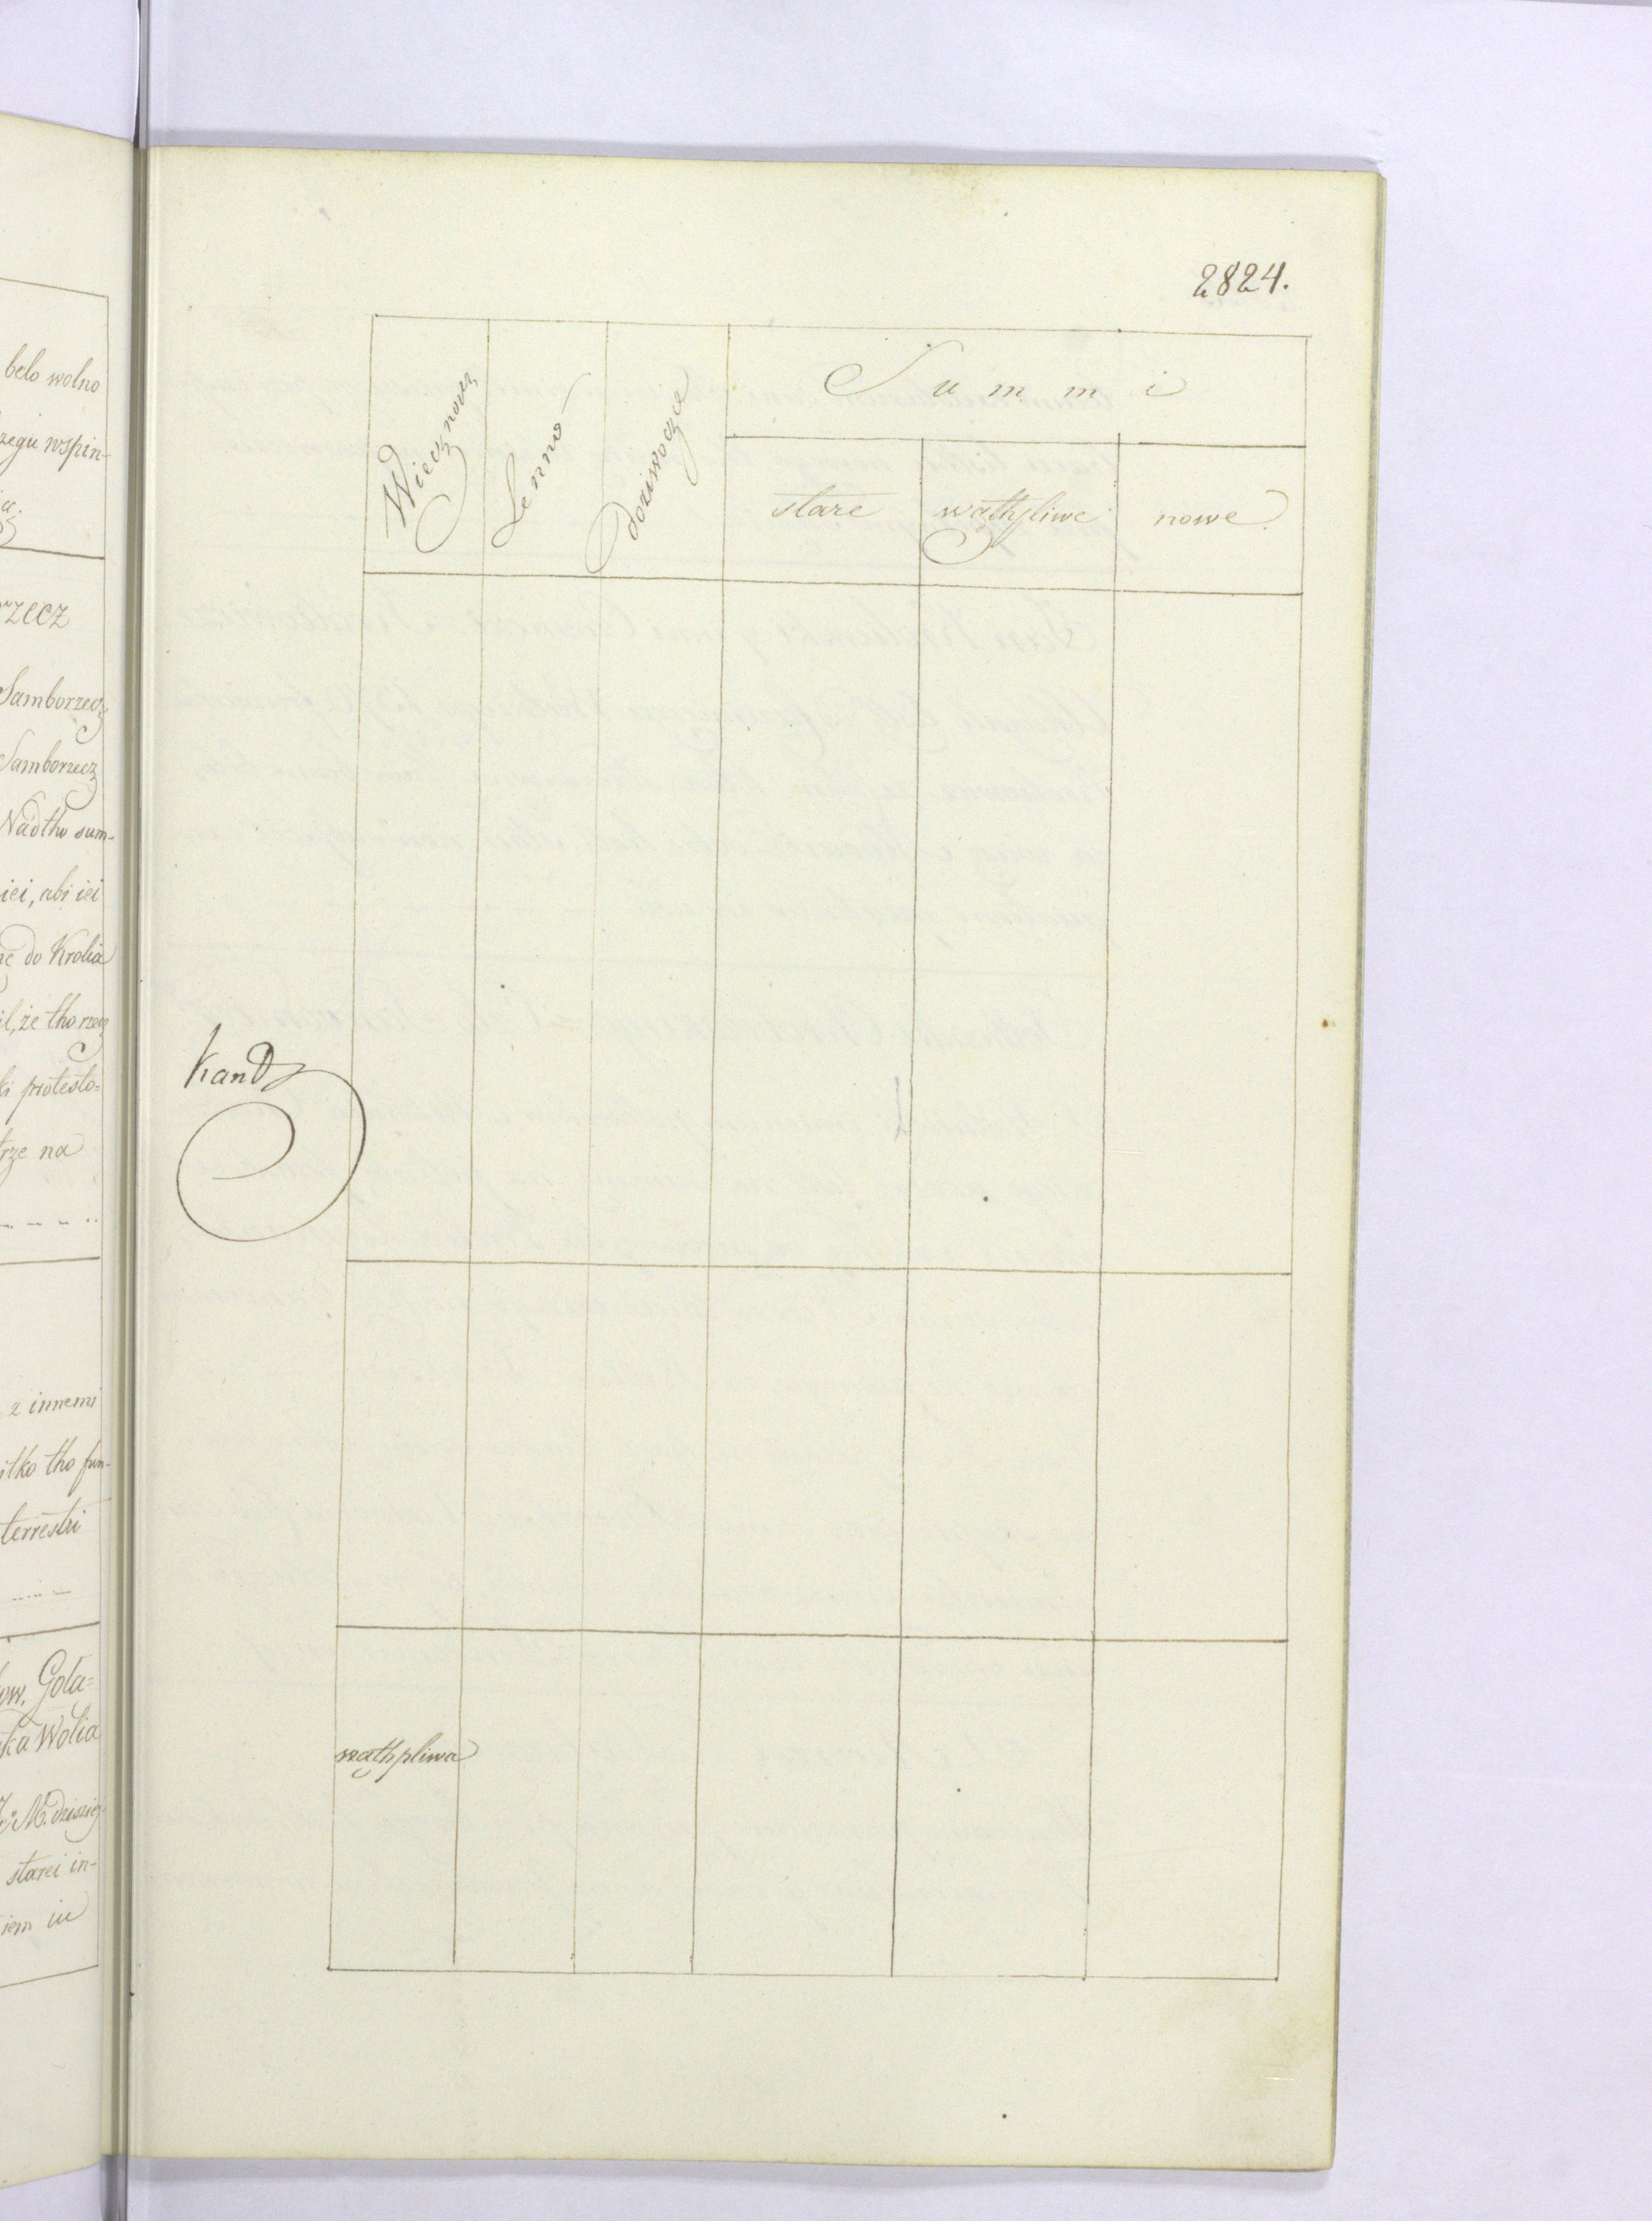 belo wolno
zegu wspin-
a.
rzecz
Samborzecz
Samborzecz
Nadtho sum-
iei, abi iei
ne do Krolia
il, że tho rzecz
ki protesto=
trze na
z innemi
ilko tho fun-
terrestri
ow. Gola=
ka Wolia
K. M. dzisziej
starei in-
iem in
2824.
Wiecznoscz
Lenno
dożiwocze
Summi
stare
wathpliwe
nowe.
kands
wąthpliwa